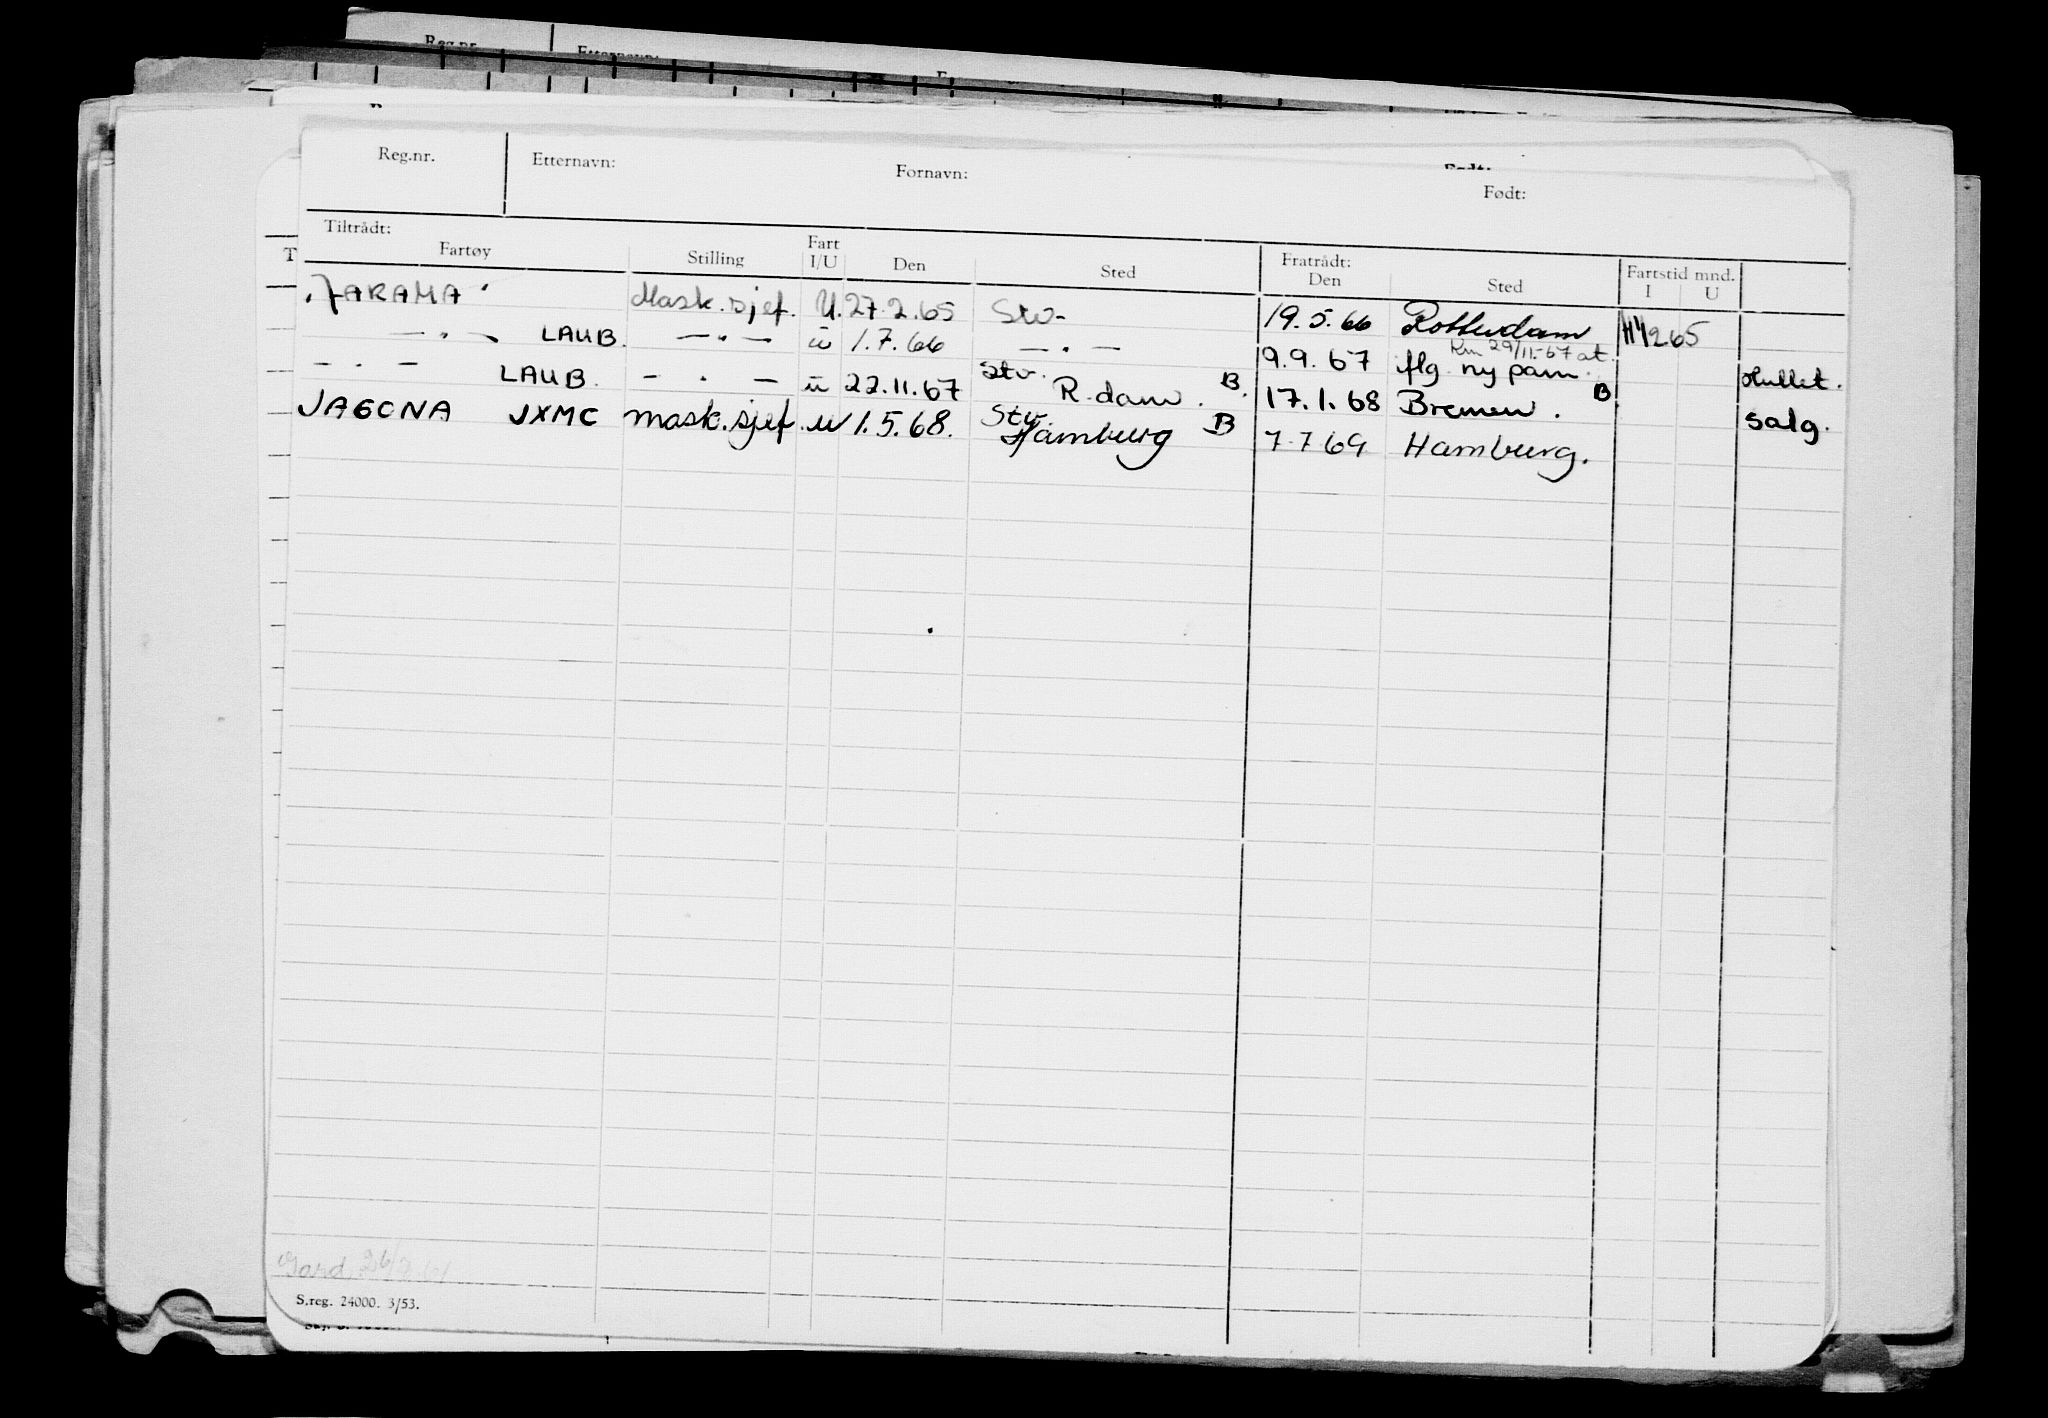 Reg.nr. Etternavn: Fornavn: Født:
Tiltrådt: Fratrådt:
Fartøy Stilling Fart I/U Den Sted Den Sted Fartstid mnd. I U
JARAMA Mask.sjef. U. 27.2.65 Stv- 19.5.66 Rotterdam 265
— " — LAUB. — " — u 1.7.66 — " — 9.9.67 flg. ny pam. Km 29/11-67 at. Hullet.
— " — LAUB. — " — u 22.11.67 Stv. R.dam. B. 17.1.68 Bremen. B. salg.
JAGONA JXMC mask.sjef. u 1.5.68. Stv. Hamburg B 7.7.69 Hamburg.
S.reg. 24000. 3/53.